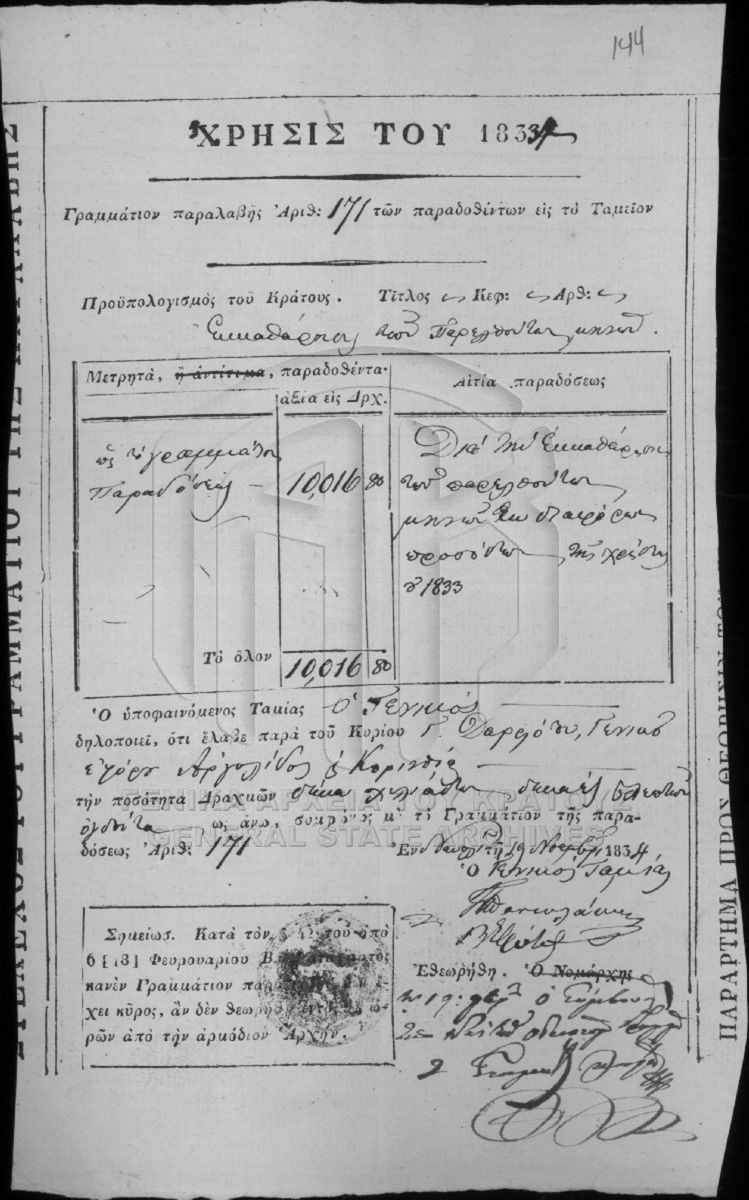 144
ΧΡΗΣΙΣ ΤΟΥ 1834
Γραμμάτιον παραλαβῆς Ἀριθ: 171 τῶν παραδοθέντων εἰς τὸ Ταμεῖον
Προϋπολογισμὸς τοῦ Κράτους. Τίτλος Κεφ: Ἀρθ:
Ἐκκαθάρισις τῶν Παρελθόντων μηνῶν.
Μετρητὰ, ἢ ἀντίτιμα, παραδοθέντα·
ἀξία εἰς Δρχ.
Αἰτία παραδόσεως
ὡς τὸ γραμμάτιον
Παραδόσεως 10,016 80
Διὰ τὴν Ἐκκαθάρισιν
τῶν παρελθόντων
μηνῶν ἐκ διαφόρων
προσόδων τῆς χρήσεως
1833
Τὸ ὅλον 10,016 80
Ὁ ὑποφαινόμενος Ταμίας Ὁ Γενικὸς
δηλοποιεῖ, ὅτι ἔλαβε παρὰ τοῦ Κυρίου Γ. Γενικοῦ
ἐφόρου Ἀργολίδος & Κορινθίας
τὴν ποσότητα Δραχμῶν δέκα χιλιάδων δεκαὲξ λεπτῶν
ὀγδοῆντα ὡς ἄνω, συμφώνως μὲ τὸ Γραμμάτιον τῆς παρα-
δόσεως Ἀριθ: 171
Ἐν Ναυπλίῳ τῇ 19 Νοεμβρ 1834
Ὁ Γενικὸς Ταμίας
Σημείωσ. Κατὰ τὸν § 42 τοῦ ἀπὸ
6 [18] Φεβρουαρίου Β. διατάγματος
κανὲν Γραμμάτιον παραλαβῆς δὲν ἔ-
χει κῦρος, ἂν δὲν θεωρηθῇ ἐντὸς ὡ-
ρῶν ἀπὸ τὴν ἁρμόδιον Ἀρχήν.
Ἐθεωρήθη. Ὁ Νομάρχης
ΣΤΕΛΕΧΟΣ ΤΟΥ ΓΡΑΜΜΑΤΙΟΥ ΤΗΣ ΠΑΡΑΛΑΒΗΣ
ΠΑΡΑΡΤΗΜΑ ΠΡΟΣ ΘΕΩΡΗΣΙΝ ΤΟΥ
ΓΕΝΙΚΑ ΑΡΧΕΙΑ ΤΟΥ ΚΡΑΤΟΥΣ
GENERAL STATE ARCHIVES